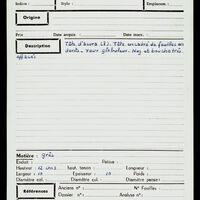 Indice : Style : Emplacem. :
Origine
Prix Date acquis. : Date inscr. :
Description
Tête d'Aura (?). Tête encadrée de feuilles en
dents. Yeux globuleux. Nez et bouche très
effacés
Matière : grès
Endroit : Patine :
Hauteur : 12 cms haut. tenon : Longueur :
Largeur : 10 Épaisseur : 10 Poids :
Diamètre col. : Diamètre inf. : Diamètre panse :
Références
Anciens n° : N° Fouilles :
Dossier n° : Analyse n° :